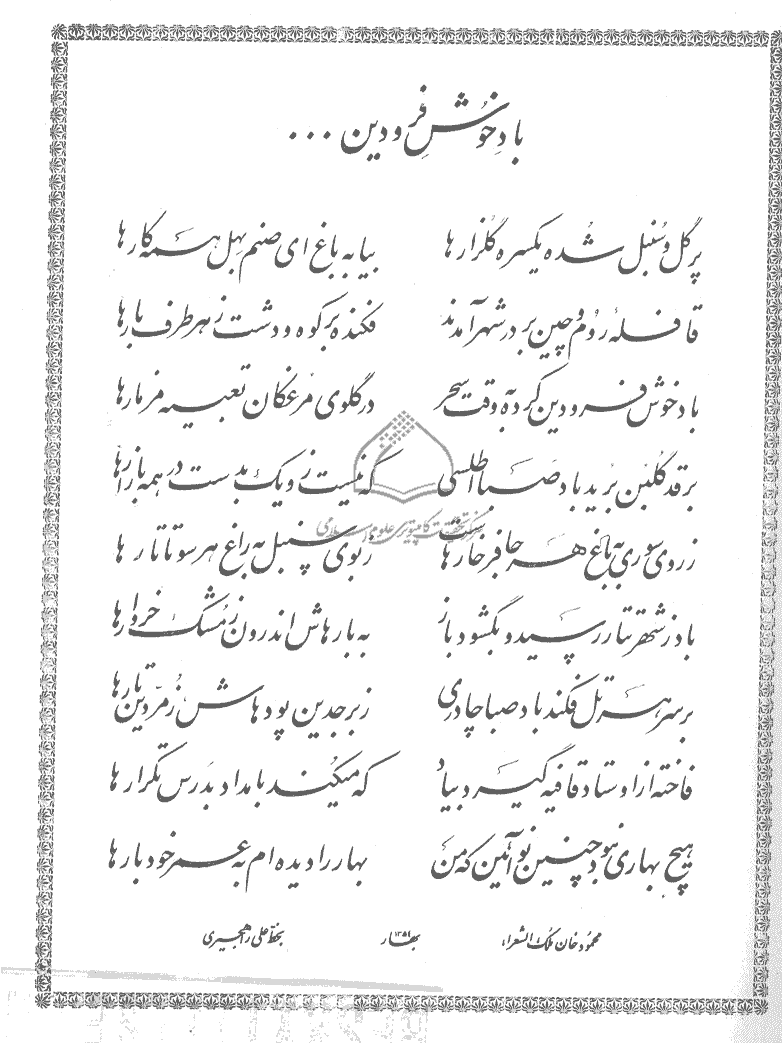 باد خوش فرودین ...
پر گل و سنبل شده یکسره گلزارها بیا به باغ ای صنم بهل همه کارها
قافله روم و چین بر در شهر آمدند فکنده بر کوه و دشت ز هر طرف بارها
باد خوش فرودین کرده به وقت سحر در گلوی مرغکان تعبیه مزمارها
بر قد گلبن برید باد صبا اطلسی که نیست زو یک بدست در همه بازارها
ز روی سوری به باغ هر جا فرخارها ز بوی سنبل به راغ هر سو تاتارها
باد ز شهر تتار رسید و بگشود باز به بارهاش اندرون ز مشک خروارها
بر سر هر تل فکند باد صبا چادری زبرجدین پودهاش زمردین تارها
فاخته از اوستاد قافیه گیرد بیاد که میکند بامداد بدرس تکرارها
هیچ بهاری نبود چنین نو آئین که من بهار را دیده ام به عمر خود بارها
محمود خان ملک الشعراء بهار ۱۳۵۹ بخط علی راهجیری
مرکز تحقیقات کامپیوتری علوم اسلامی